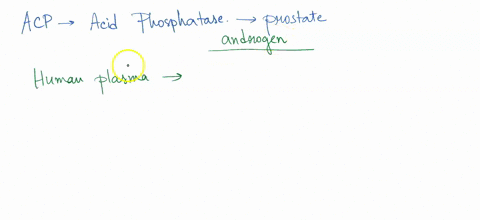 ACP → Acid Phosphatase. → prostate
androgen
Human plasma →